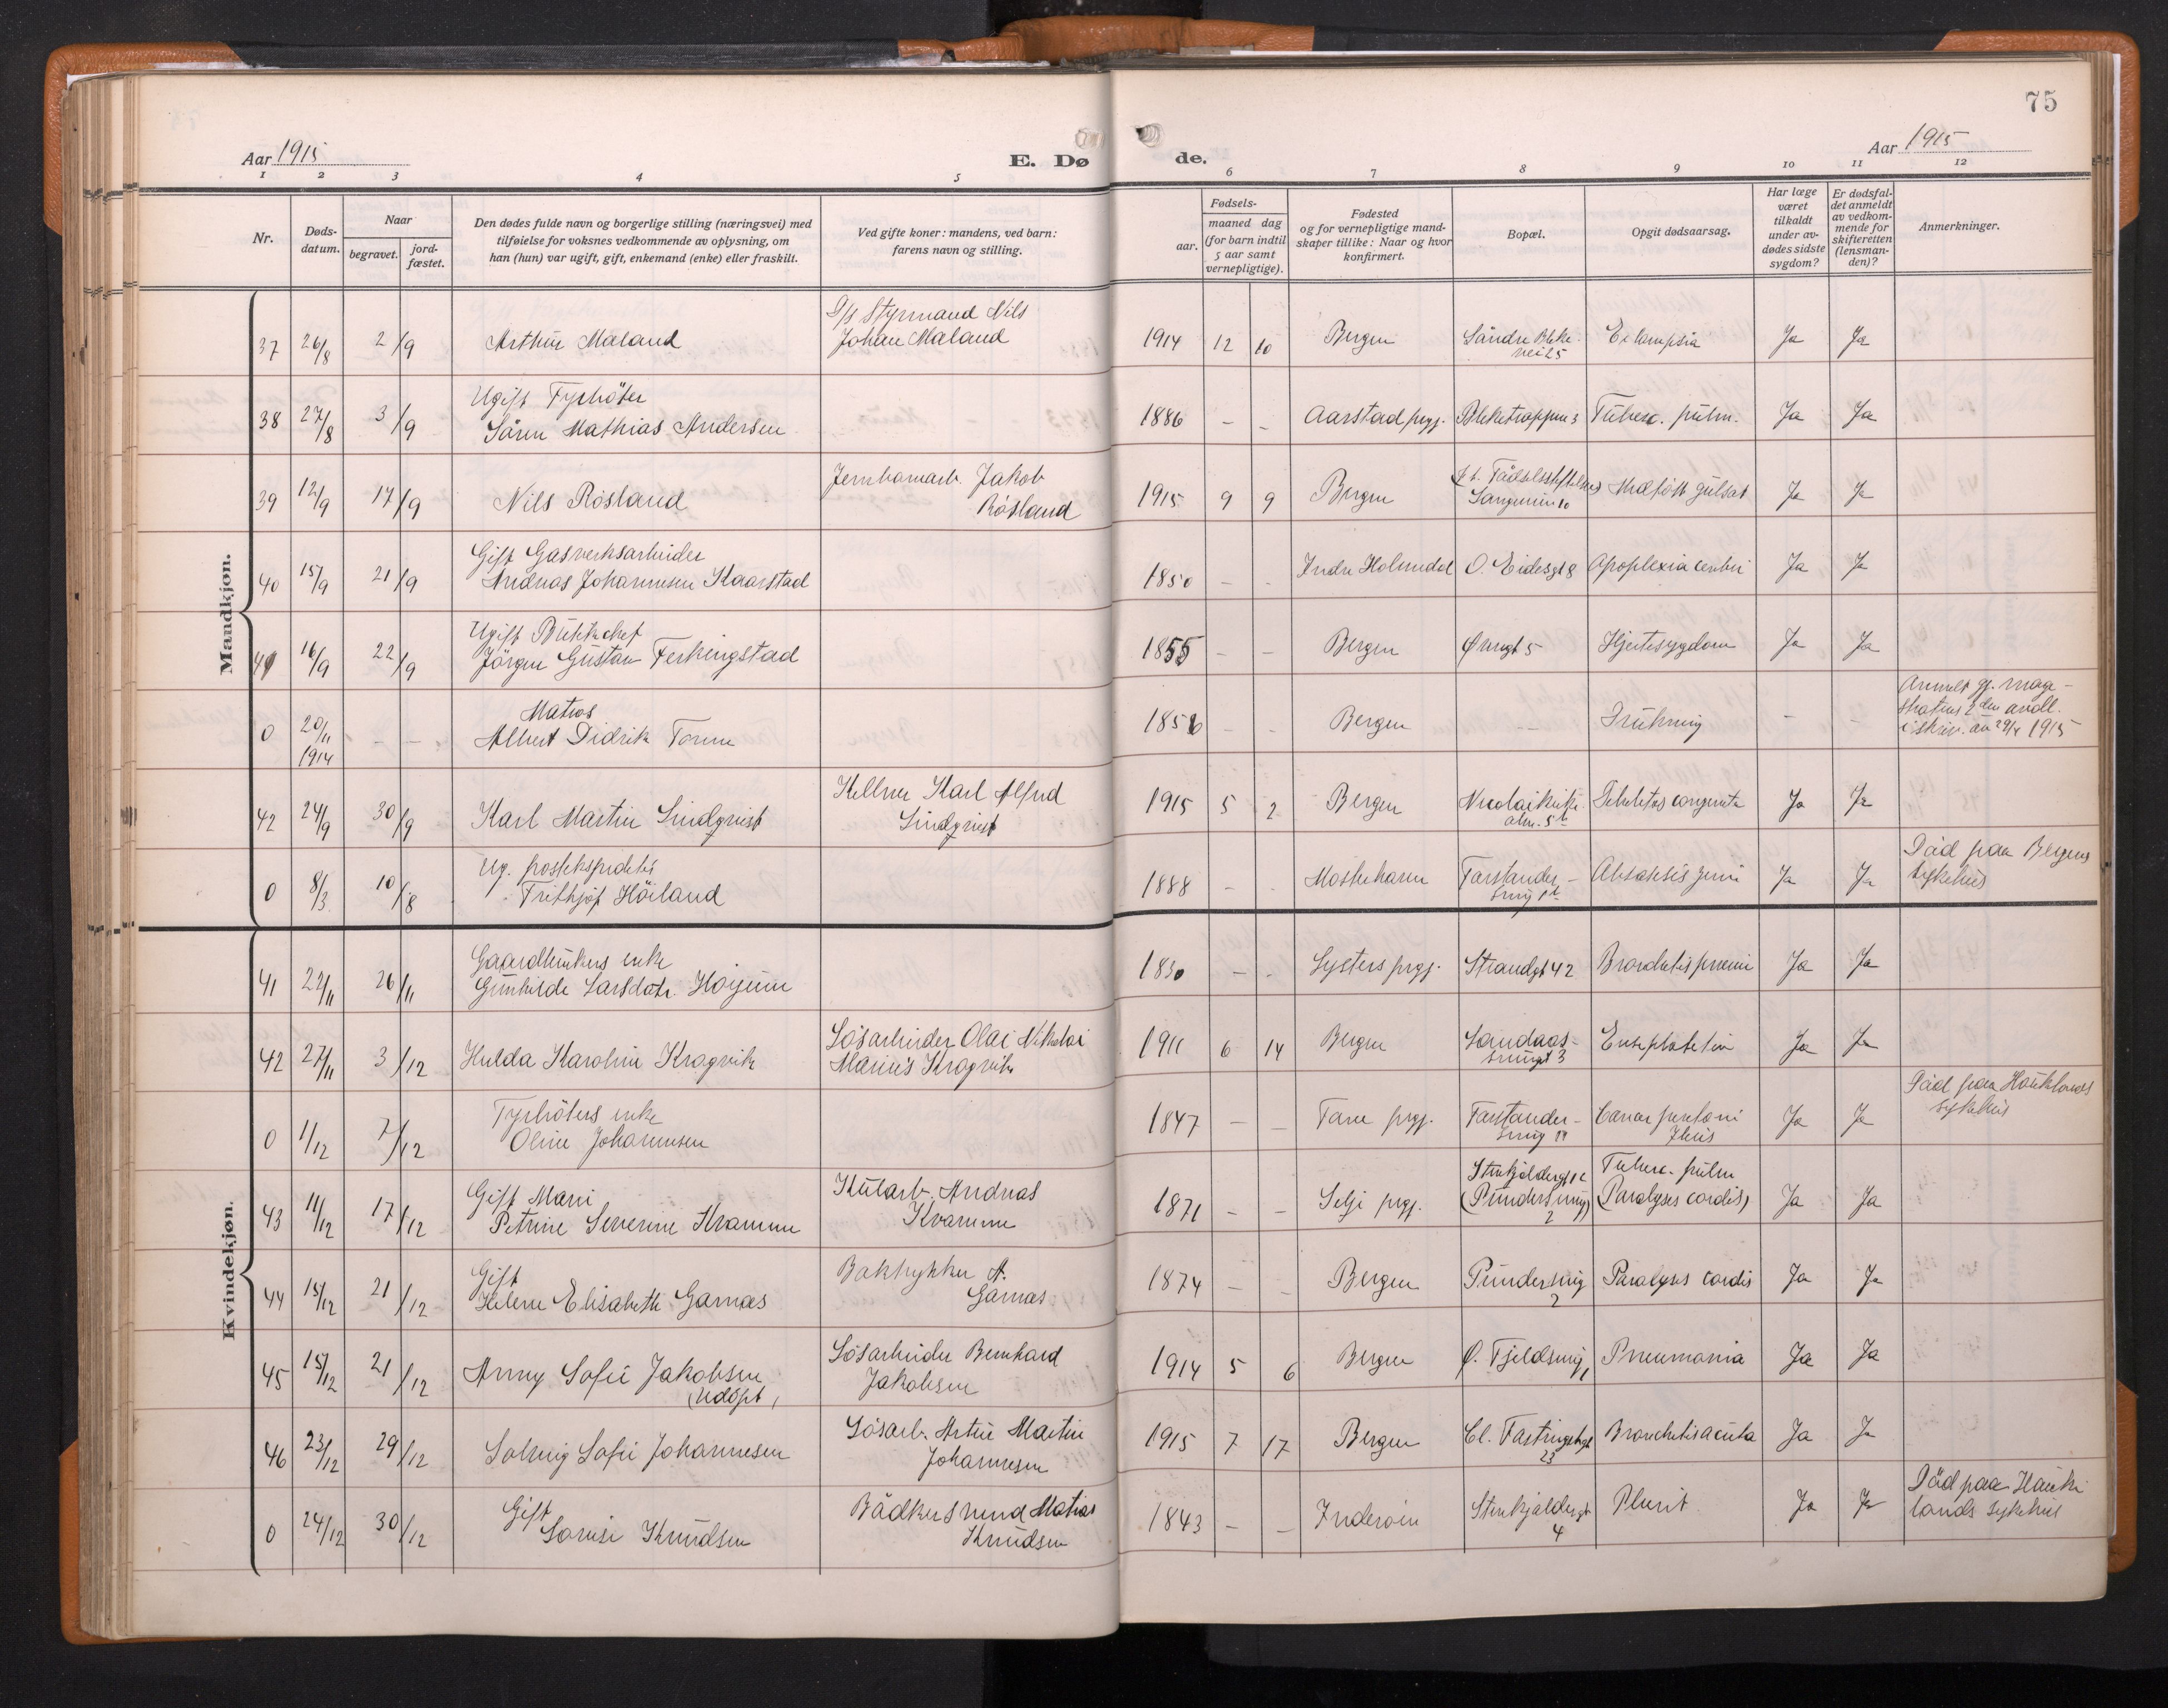 75
Aar 1915
E. Dø
de.
Aar 1915
1 2 3 4 5 6 7 8 9 10 11 12
Nr.
Døds-
datum.
Naar
begravet.
jord-
fæstet.
Den dødes fulde navn og borgerlige stilling (næringsvei) med
tilføielse for voksnes vedkommende av oplysning, om
han (hun) var ugift, gift, enkemand (enke) eller fraskilt.
Ved gifte koner: mandens, ved barn:
farens navn og stilling.
Fødsels-
aar.
maaned dag
(for barn indtil
5 aar samt
vernepligtige).
Fødested
og for vernepligtige mand-
skaper tillike: Naar og hvor
konfirmert.
Bopæl.
Opgit dødsaarsag.
Har læge
været
tilkaldt
under av-
dødes sidste
sygdom?
Er dødsfal-
det anmeldt
av vedkom-
mende for
skifteretten
(lensman-
den)?
Anmerkninger.
Mandkjøn.
37 26/8 2/9 Arthur Maland
Styrmand Nils
Johan Maland
1914 12 10 Bergen
Søndre Bleke
vei 25
Eclampsia Ja Ja
38 27/8 3/9
Ugift Fyrbøter
Søren Mathias Andersen
1886 - - Aarstad prgj. Bleketrappen 3 Tuberc. pulm. Ja Ja
39 12/9 17/9 Nils Røsland
Jernbanearb. Jakob
Røsland
1915 9 9 Bergen
Medfødt gulsot Ja Ja
40 15/9 21/9
Gift Gasverksarbeider
Andreas Johannesen Kaarstad
1850 - - Indre Holmedal O. Eidesgt 8 Apoplexia cerebri Ja Ja
41 16/9 22/9
Ugift Butikchef
Jørgen Gustav Ferkingstad
1855 - - Bergen Øvregt 5 Hjertesygdom Ja Ja
0 20/11 1914 - -
Matros
Albert Didrik Tonne
Bergen - Drukning - -
Anmeldt gj. mage-
stratens 2den avdl.
i skriv. av 29/4 1915
42 24/9 30/9 Karl Martin Lindqvist
Kellner Karl Alfred
Lindqvist
1915 5 2 Bergen
Nicolaikirke
alm. 5b
Debilitas congenita Ja Ja
0 8/3 10/8
Ug. postekspeditør
Frithjof Høiland
1888 - - Mosterhavn
Forstander-
smug 1b
Ja Ja
Død paa Bergens
sykehus
Kvindekjøn.
41 22/11 26/11
Gaardbrukers enke
Gunhilde Larsdatr. Høijum
1830 - - Lysters prgj. Strandgt 42 Ja Ja
42 27/11 3/12 Hulda Karolin Kragvik
Løsarbeider Olai Nikolai
Marius Kragvik
1911 6 14 Bergen
Sandaas-
smuget 3
Ja Ja
0 1/12 7/12
Fyrbøters enke
Oline Johannesen
1847 - - Fane prgj.
Forstander-
smug 11
Cancer peritoni
Ja Ja
Død paa Hauklands
sykehus
43 11/12 17/12
Gift Marie
Petrine Severine Kvamme
Kularb. Andreas
Kvamme
1871 - - Selje prgj.
Stenkjeldergt 12
(Pundersmug)
2
Tuberc. pulm
(Paralyses cordis) Ja Ja
44 15/12 21/12
Gift
Helene Elisabeth Garnæs
Boktrykker A.
Garnæs
1874 - - Bergen
Pundersmug
2
Paralyses cordis Ja Ja
45 15/12 21/12
Anny Sofie Jakobsen
(udøpt)
Løsarbeider Bernhard
Jakobsen
1914 5 6 Bergen Ø. Fjeldsmug 1 Pneumonia Ja Ja
46 23/12 29/12 Solveig Sofie Johannesen
Løsarb. Artur Martin
Johannesen
1915 7 17 Bergen
Cl. Fastingsgt
23
Bronchitis acuta Ja Ja
0 24/12 30/12
Gift
Lovise Knudsen
Bødkersvend Matias
Knudsen
1843 - - Inderøien
Stenkjeldergt
4
Plurit Ja Ja
Død paa Hauk-
lands sykehus